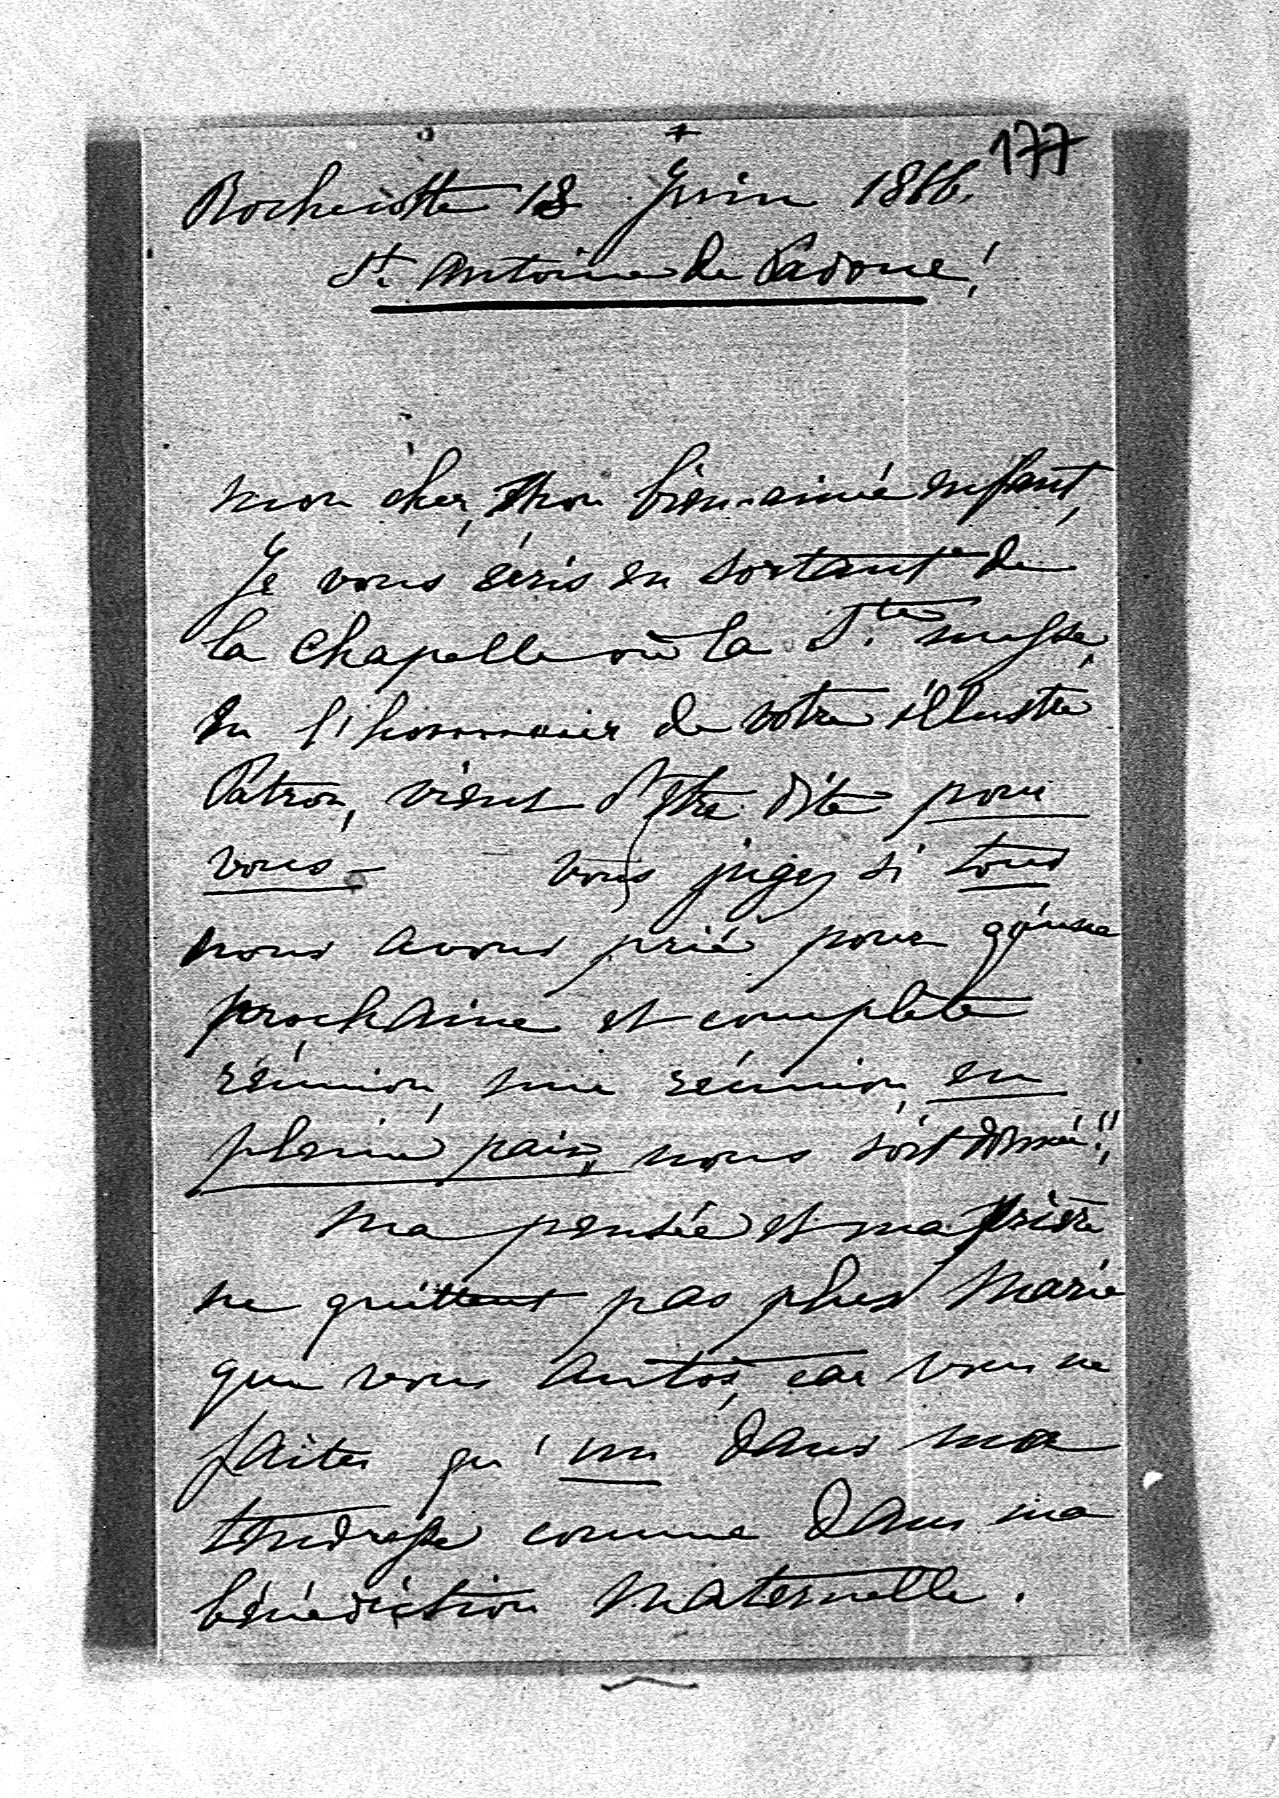 177
Rochecotte 13 Juin 1866.
St. Antoine de Padoue!
mon cher, mon bien-aimé enfant,
Je vous écris en sortant de
la chapelle où la Ste messe,
en l'honneur de votre illustre
Patron, vient d'être dite pour
vous – vous jugez si tous
nous avons prié pour qu'une
prochaine et complète
réunion, une réunion, en
pleine paix, nous soit donnée!!
Ma pensée et ma prière
ne quittent pas plus Marie
que vous Antoś, car vous ne
faites qu'un dans ma
tendresse comme dans ma
bénédiction maternelle.